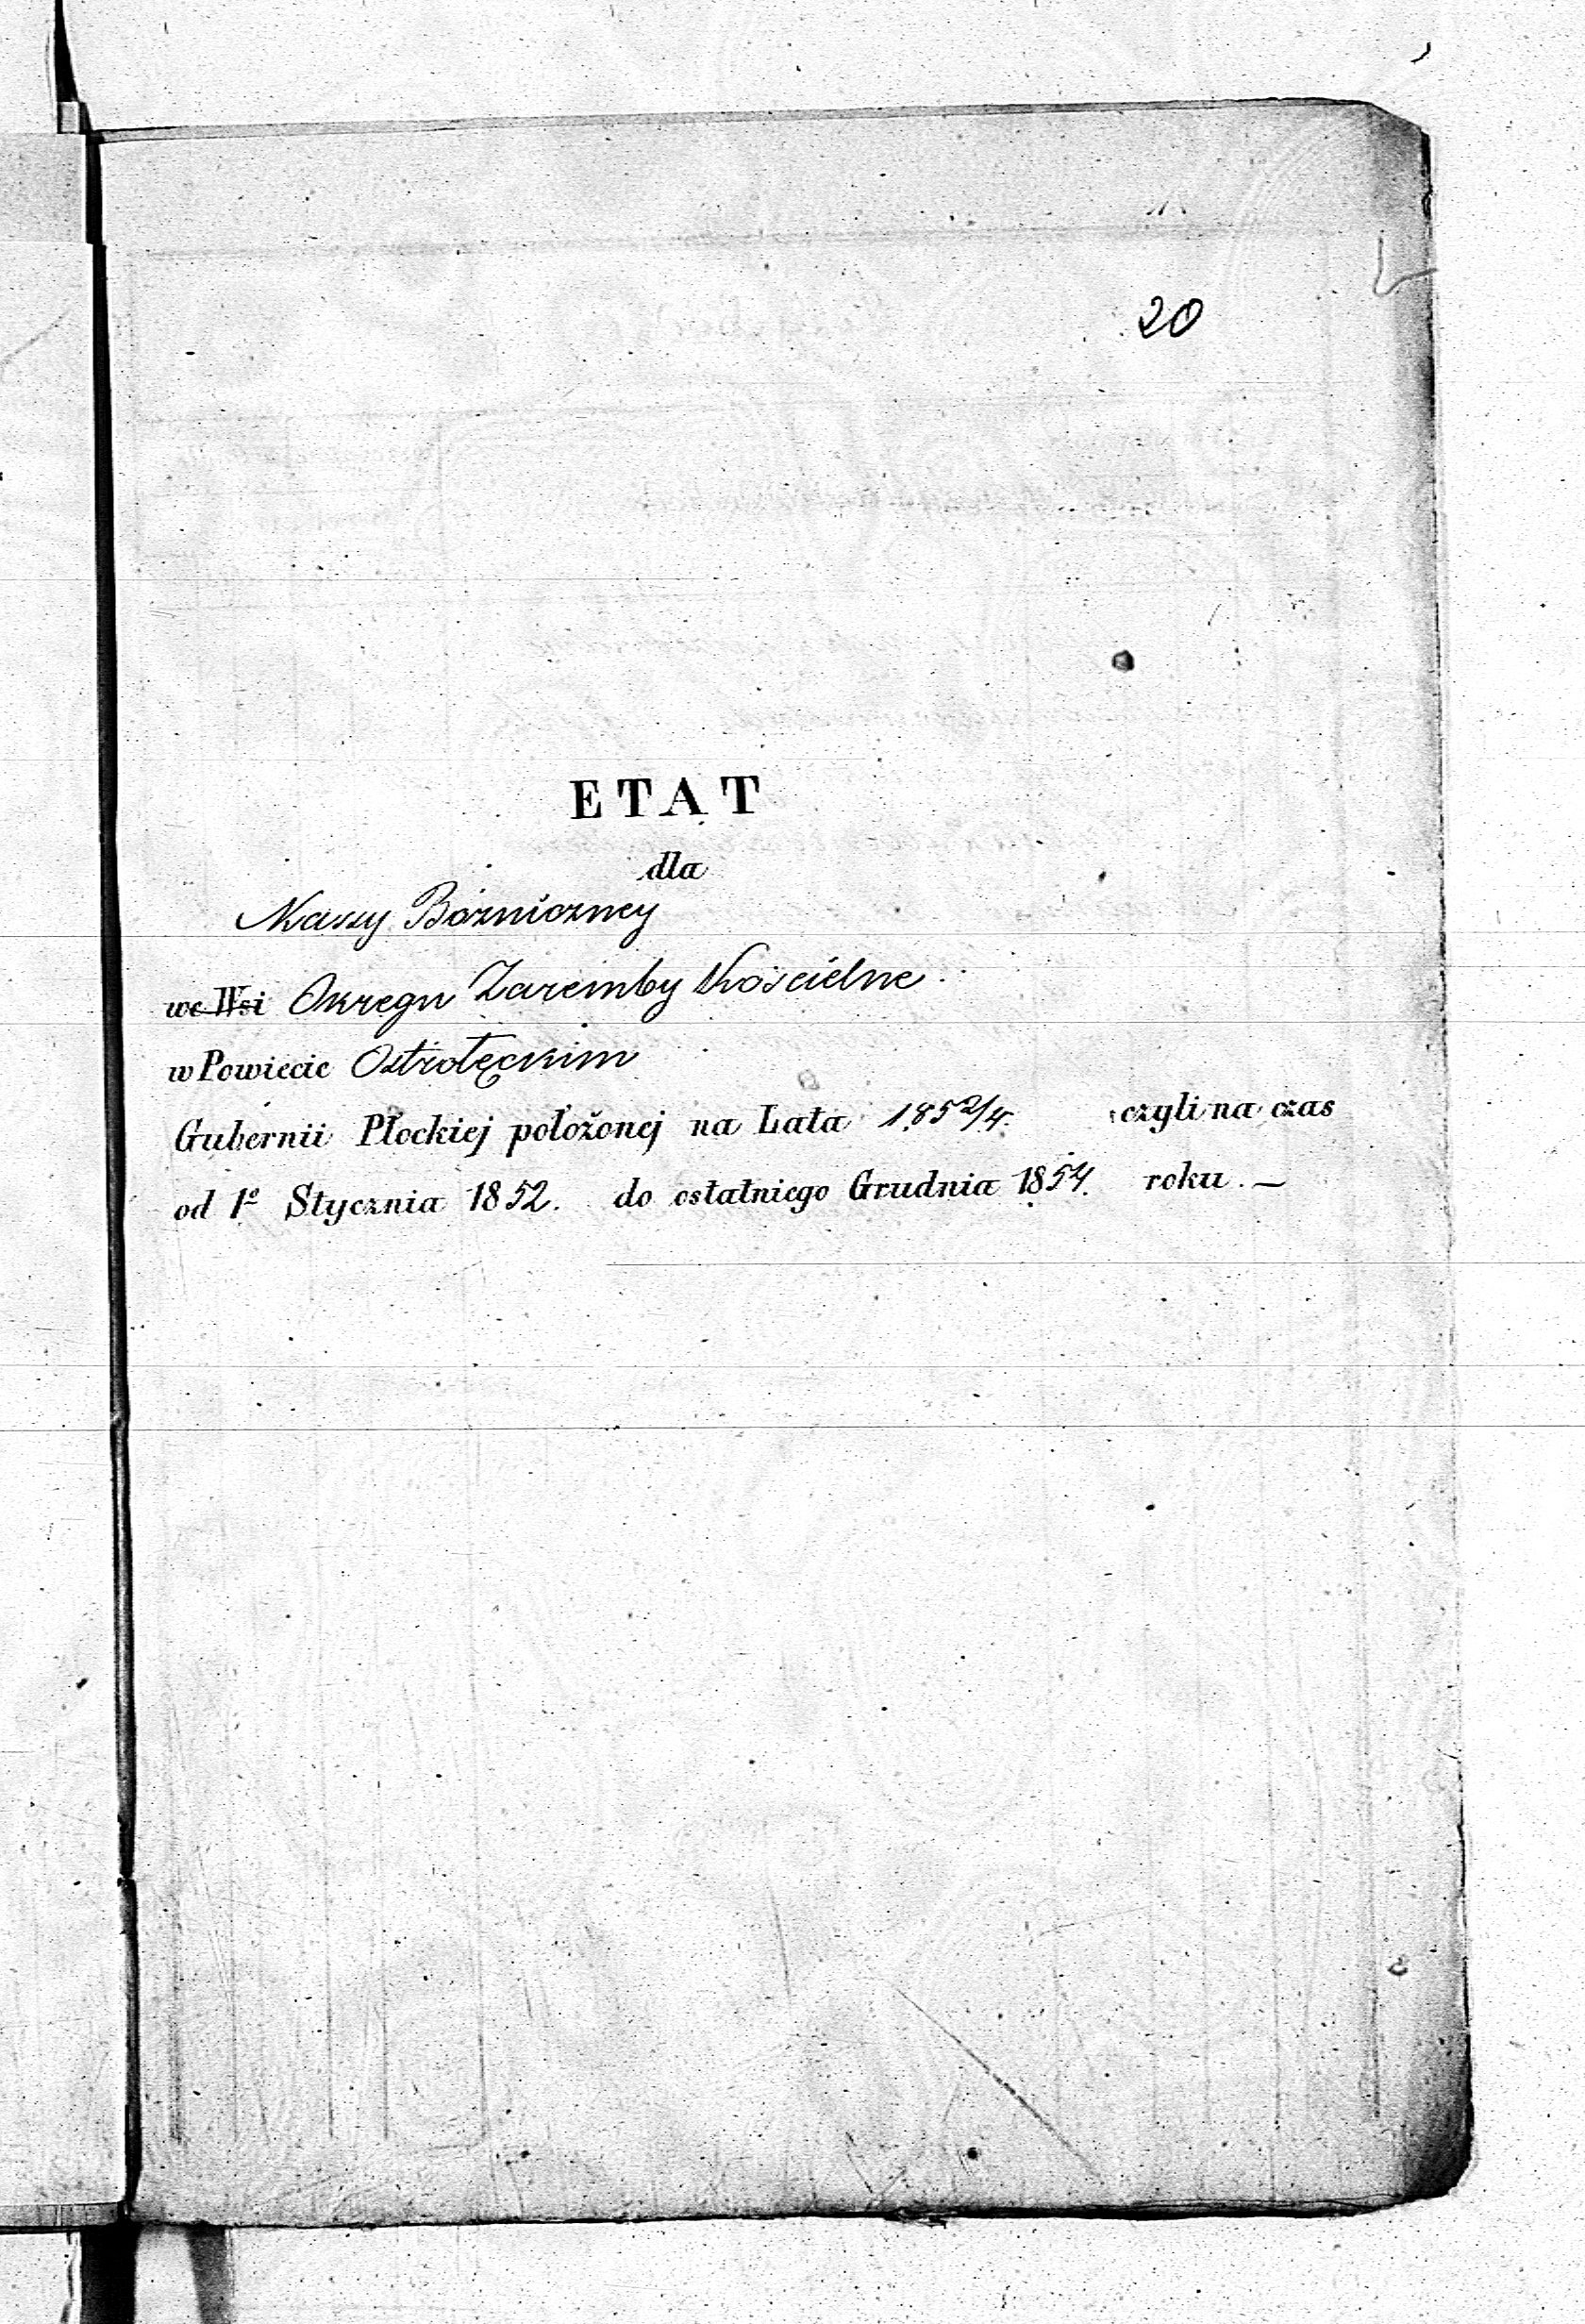 20
ETAT
dla
Kassy Bożniczney
we Wsi Okręgu Zaremby Kościelne
w Powiecie Ostrołęckim
Gubernii Płockiej położonej na Lata 1852/4. czyli na czas
od 1º Stycznia 1852. do ostatniego Grudnia 1854. roku. —